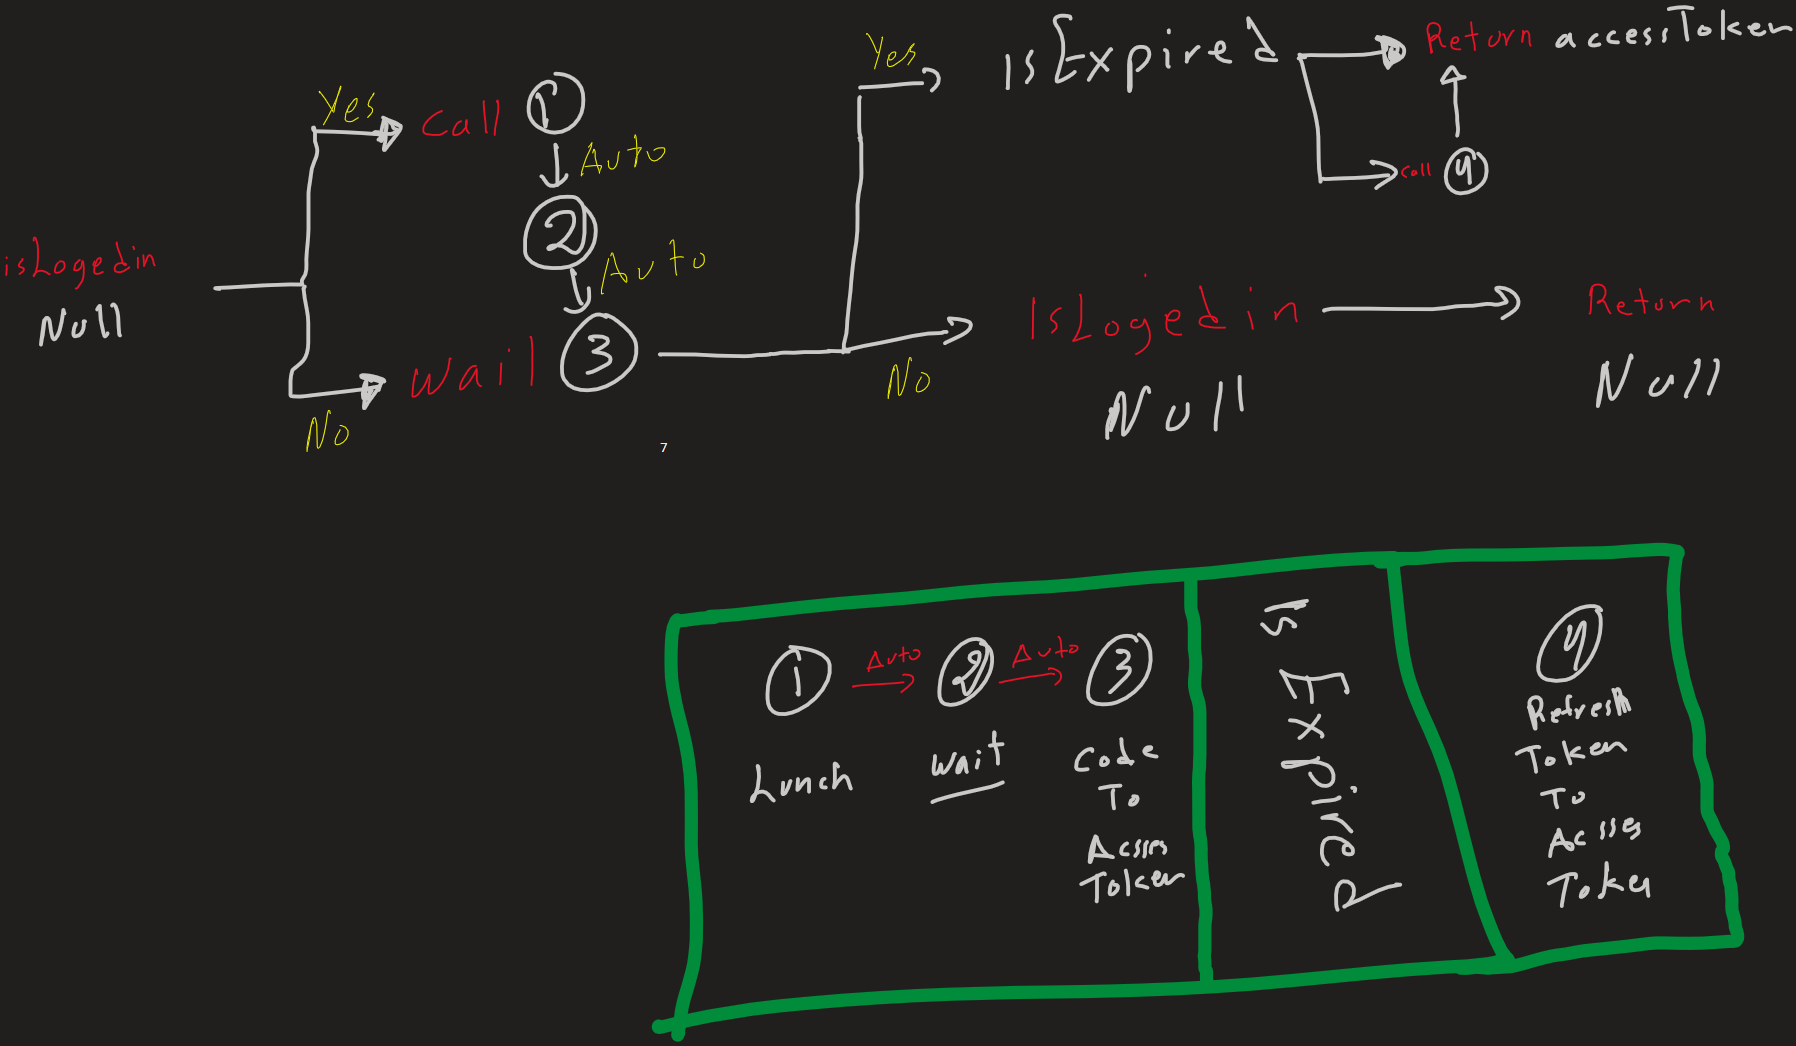 isLogedin
Null
Yes
Call 1
Auto
2
Auto
No
Wail 3
7
Yes
IsExpired
Return accessToken
Call 4
No
IsLogedin
Null
Return
Null
1 Auto 2 Auto 3
Lunch
wait
Code
To
Acsses
Token
Is Expired
4
Refresh
Token
To
Acsses
Token